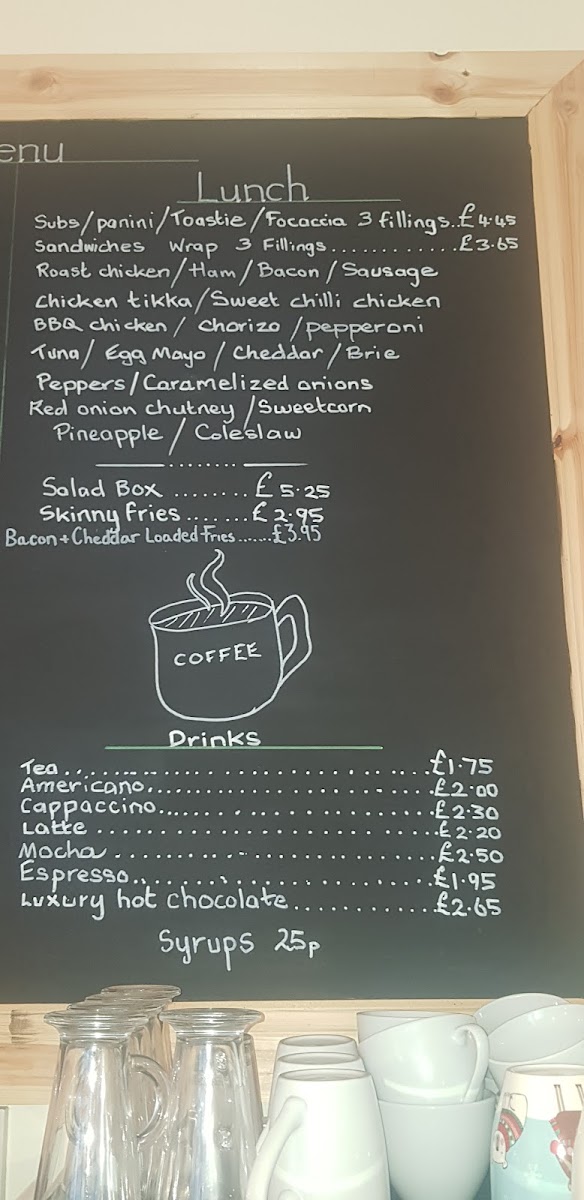 enu
Lunch
Subs/panini/Toastie/Focaccia 3 fillings..£4.45
Sandwiches Wrap 3 Fillings............£3.65
Roast chicken/Ham/Bacon/Sausage
Chicken tikka/Sweet chilli chicken
BBQ chicken/ Chorizo /pepperoni
Tuna/ Egg Mayo / Cheddar/Brie
Peppers/Caramelized onions
Red onion chutney /Sweetcorn
Pineapple / Coleslaw
Salad Box ........£5.25
Skinny fries.......£2.95
Bacon+Cheddar Loaded Fries......£3.95
COFFEE
Drinks
Tea..............................£1.75
Americano.........................£2.00
Cappaccino........................£2.30
Latte.............................£2.20
Mocha.............................£2.50
Espresso..........................£1.95
Luxury hot chocolate............£2.65
Syrups 25p